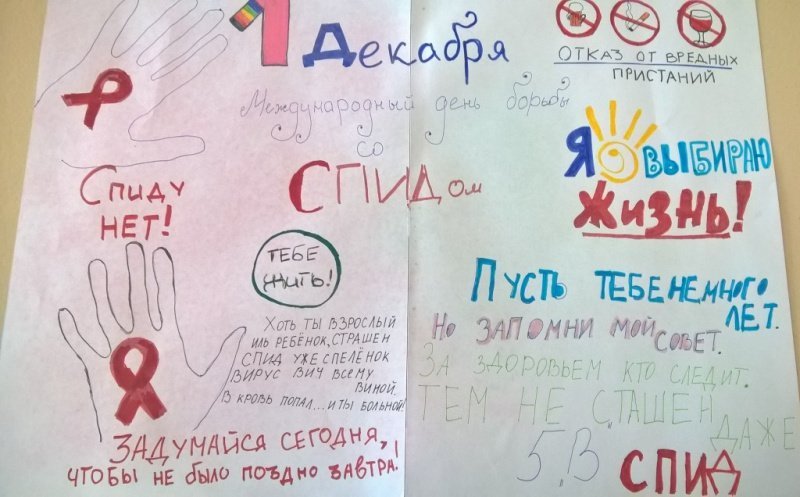 1 Декабря
Международный день борьбы
со
СПИДом
СПИДУ
НЕТ!
ТЕБЕ
ЖИТЬ!
ХОТЬ ТЫ ВЗРОСЛЫЙ
ИЛЬ РЕБЁНОК, СТРАШЕН
СПИД УЖЕ СПЕЛЁНОК
ВИРУС ВИЧ ВСЕМУ
ВИНОЙ.
В КРОВЬ ПОПАЛ... И ТЫ БОЛЬНОЙ!
ЗАДУМАЙСЯ СЕГОДНЯ,
ЧТОБЫ НЕ БЫЛО ПОЗДНО ЗАВТРА!
ОТКАЗ ОТ ВРЕДНЫХ
ПРИСТАНИЙ
Я ВЫБИРАЮ
ЖИЗНЬ!
ПУСТЬ ТЕБЕ НЕМНОГО
ЛЕТ.
НО ЗАПОМНИ МОЙ СОВЕТ.
ЗА ЗДОРОВЬЕМ КТО СЛЕДИТ.
ТЕМ НЕ СТАШЕН
ДАЖЕ
СПИД
5.В